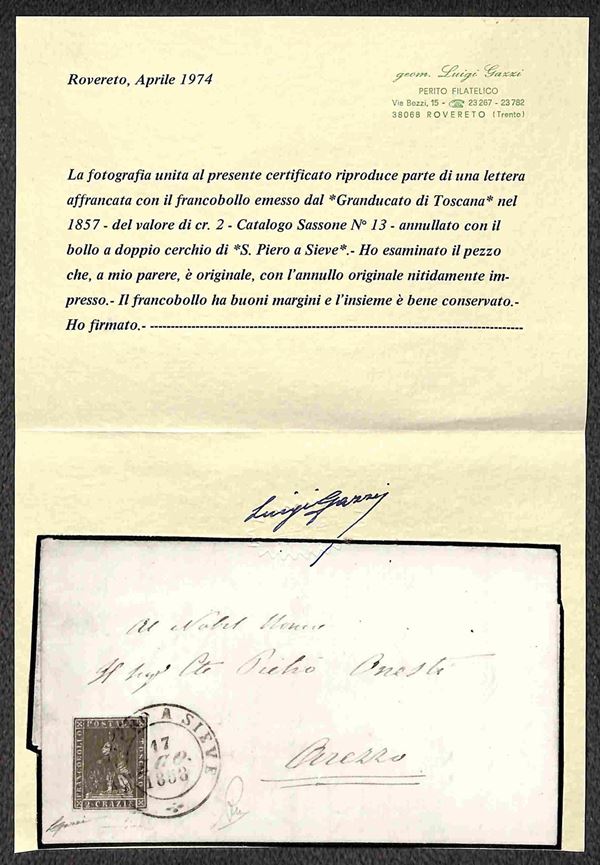 Rovereto, Aprile 1974
geom. Luigi Gazzi
PERITO FILATELICO
Via Bezzi, 15 - ☎ 23267 - 23782
38068 ROVERETO (Trento)
La fotografia unita al presente certificato riproduce parte di una lettera
affrancata con il francobollo emesso dal *Granducato di Toscana* nel
1857 - del valore di cr. 2 - Catalogo Sassone N° 13 - annullato con il
bollo a doppio cerchio di *S. Piero a Sieve*.- Ho esaminato il pezzo
che, a mio parere, è originale, con l'annullo originale nitidamente im-
presso.- Il francobollo ha buoni margini e l'insieme è bene conservato.-
Ho firmato.- ----------
Luigi Gazzi
Al Nobil Uomo
Il Sigr Cte Pietro Onesti
Arezzo
A SIEVE
17
1863
FRANCOBOLLO
POSTALE
TOSCANO
2 CRAZIE